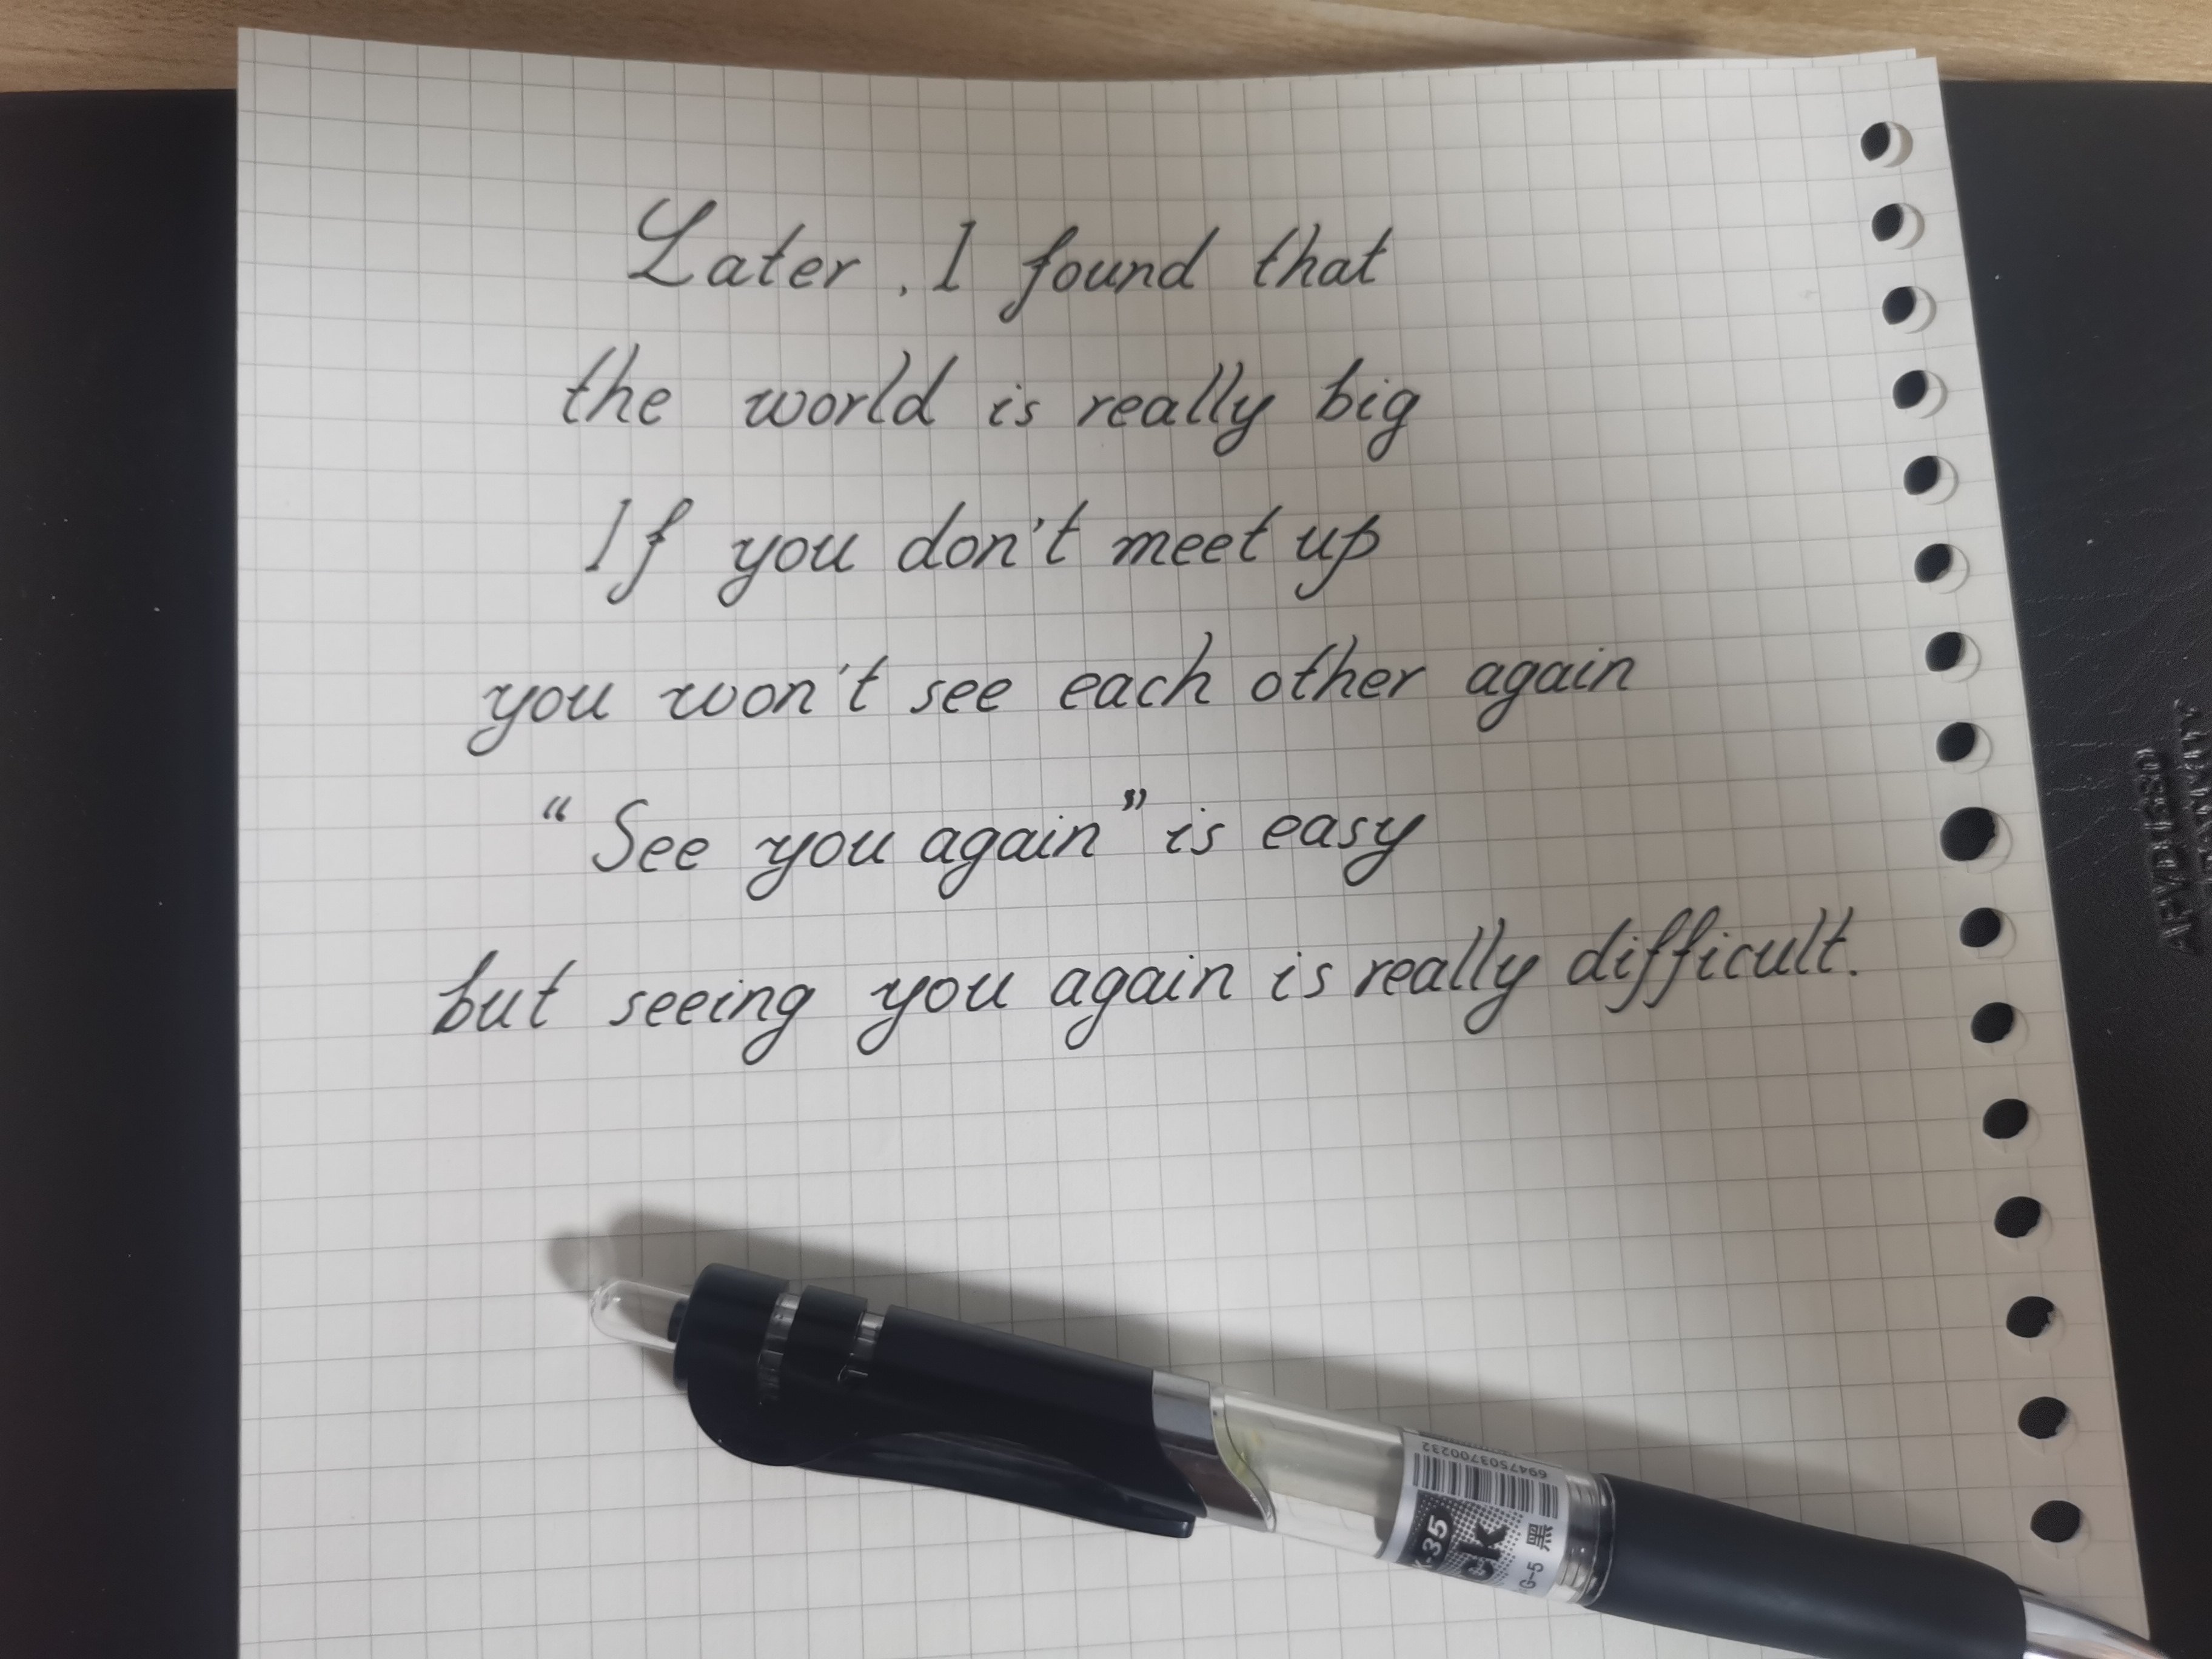 Later, I found that
the world is really big
If you don't meet up
you won't see each other again
“See you again” is easy
but seeing you again is really difficult.
6947503700232
-35
ck
G-5 黑